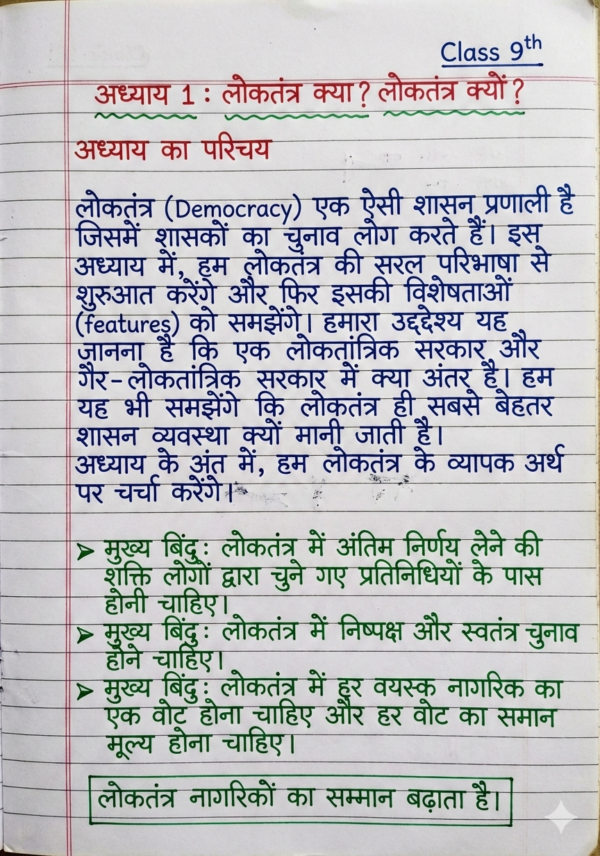 Class 9th
अध्याय 1 : लोकतंत्र क्या? लोकतंत्र क्यों?
अध्याय का परिचय
लोकतंत्र (Democracy) एक ऐसी शासन प्रणाली है
जिसमें शासकों का चुनाव लोग करते हैं। इस
अध्याय में, हम लोकतंत्र की सरल परिभाषा से
शुरुआत करेंगे और फिर इसकी विशेषताओं
(features) को समझेंगे। हमारा उद्द्देश्य यह
जानना है कि एक लोकतांत्रिक सरकार और
गैर-लोकतांत्रिक सरकार में क्या अंतर है। हम
यह भी समझेंगे कि लोकतंत्र ही सबसे बेहतर
शासन व्यवस्था क्यों मानी जाती है।
अध्याय के अंत में, हम लोकतंत्र के व्यापक अर्थ
पर चर्चा करेंगे।
➤ मुख्य बिंदु: लोकतंत्र में अंतिम निर्णय लेने की
शक्ति लोगों द्वारा चुने गए प्रतिनिधियों के पास
होनी चाहिए।
➤ मुख्य बिंदु: लोकतंत्र में निष्पक्ष और स्वतंत्र चुनाव
होने चाहिए।
➤ मुख्य बिंदु: लोकतंत्र में हर वयस्क नागरिक का
एक वोट होना चाहिए और हर वोट का समान
मूल्य होना चाहिए।
लोकतंत्र नागरिकों का सम्मान बढ़ाता है।